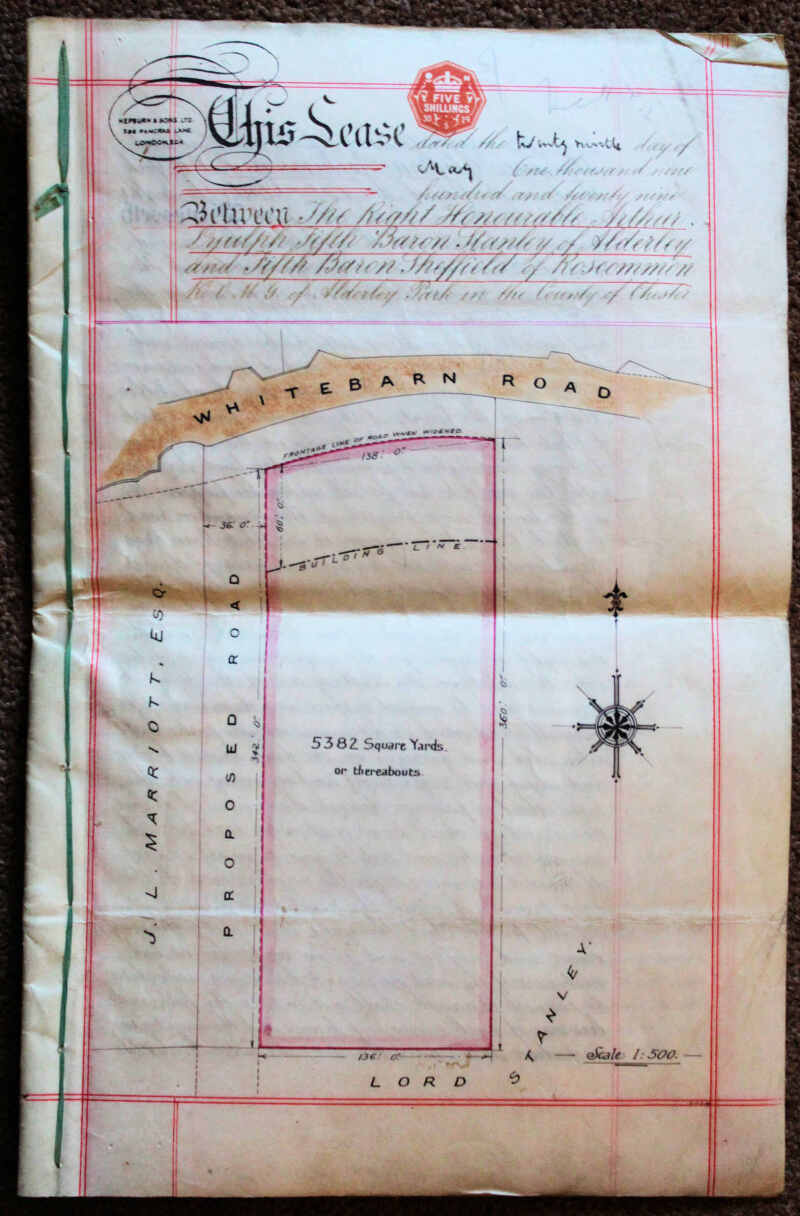 HEPBURN & SONS LTD.
PANCRAS LANE.
LONDON, E.C.4.
This Lease
FIVE
SHILLINGS
30 29
5
dated the twenty ninth day of
May One thousand nine
hundred and twenty nine
Between The Right Honourable Arthur
Lyulph Fifth Baron Stanley of Alderley
and Fifth Baron Sheffield of Roscommon
K.C.M.G. of Alderley Park in the County of Chester
WHITEBARN ROAD
FRONTAGE LINE OF ROAD WHEN WIDENED.
138' 0"
36' 0"
60' 0"
BUILDING LINE.
J. L. MARRIOTT, ESQ.
PROPOSED ROAD
342' 0"
360' 0"
5382 Square Yards.
or thereabouts.
136' 0"
LORD STANLEY.
Scale 1:500.